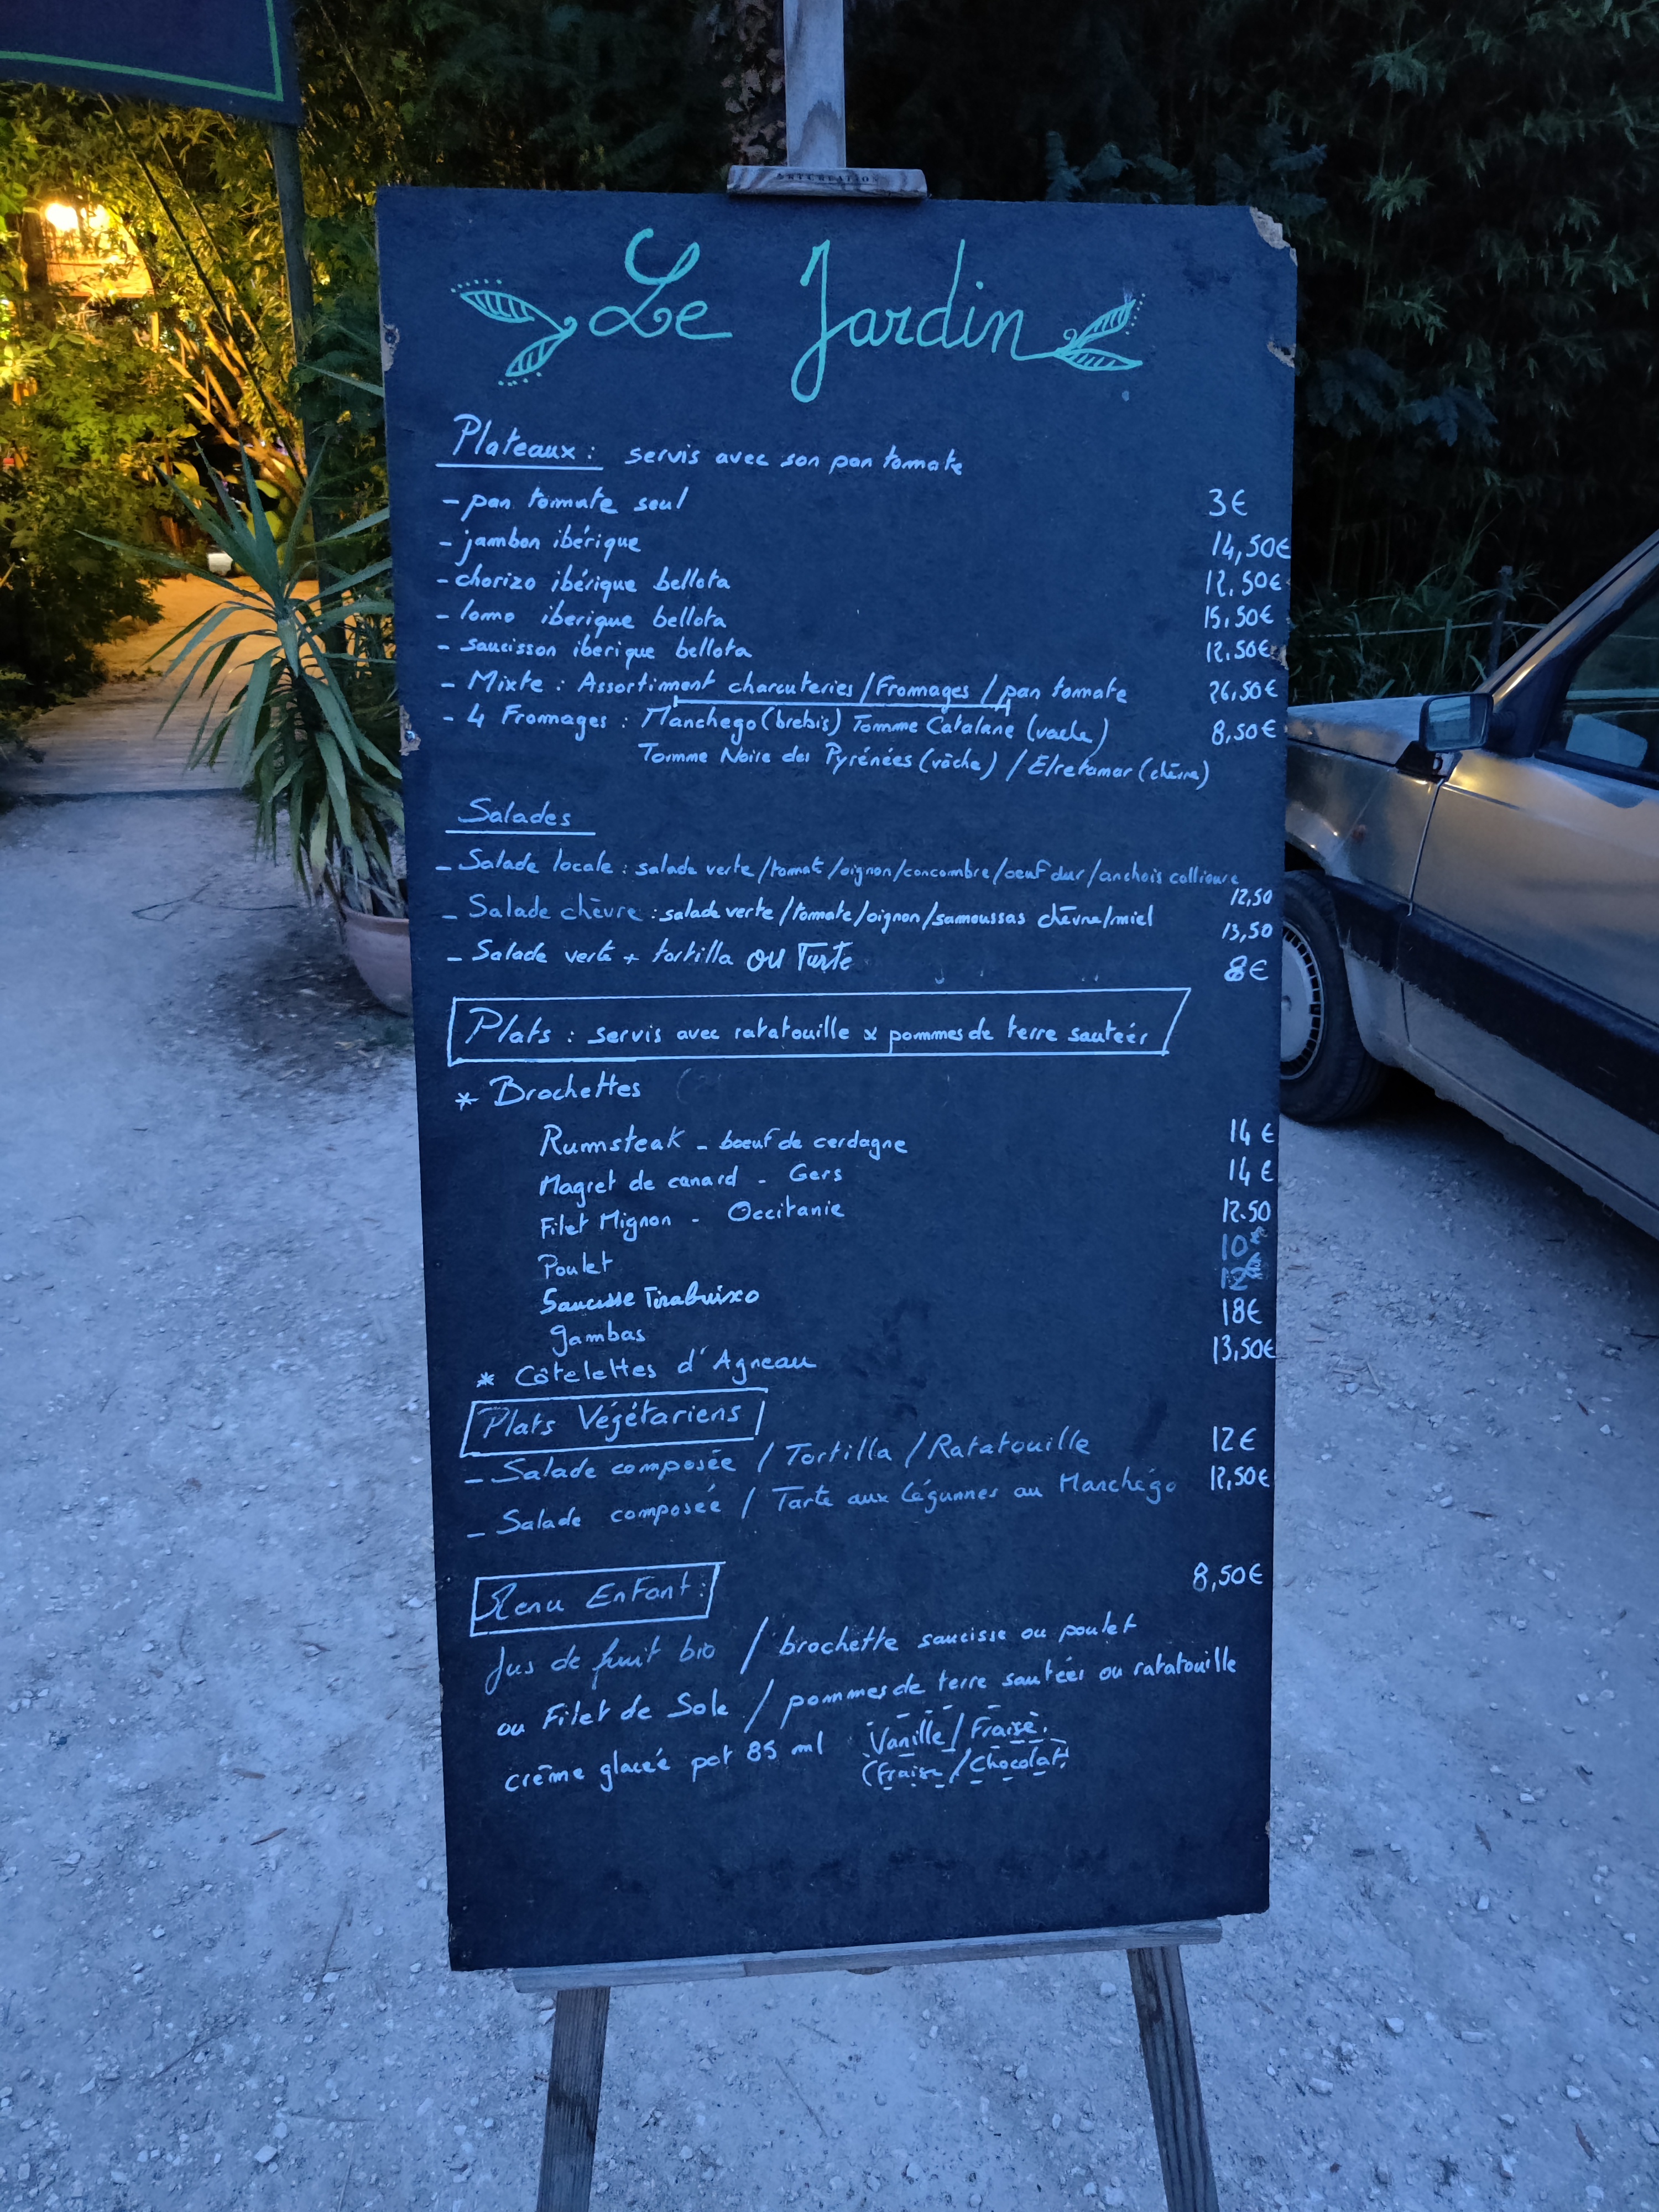 ARTCREATION
Le Jardin
Plateaux : servis avec son pan tomate
- pan tomate seul 3€
- jambon ibérique 14,50€
- chorizo ibérique bellota 12,50€
- lomo iberique bellota 15,50€
- saucisson iberique bellota 12.50€
- Mixte : Assortiment charcuteries / Fromages / pan tomate 26,50€
- 4 Fromages : Manchego (brebis) Tomme Catalane (vache) 8,50€
Tomme Noire des Pyrénées (vâche) / Elretamar (chèvre)
Salades
- Salade locale : salade verte / tomate / oignon / concombre / oeuf dur / anchois collioure
12,50
- Salade chèvre : salade verte / tomate / oignon / samoussas chèvre/miel 13,50
- Salade verte + tortilla OU Tarte 8€
Plats : servis avec ratatouille x pommes de terre sauteés
* Brochettes
Rumsteak - boeuf de cerdagne 14 €
Magret de canard - Gers 14 €
Filet Mignon - Occitanie 12.50
Poulet 10€
Saucisse Tirabuixo 12€
gambas 18€
* Côtelettes d'Agneau 13,50€
Plats Végétariens
- Salade composée / Tortilla / Ratatouille 12€
- Salade composeé / Tarte aux légumes au Manchégo 12,50€
Menu Enfant : 8,50€
Jus de fruit bio / brochette saucisse ou poulet
ou Filet de Sole / pommes de terre sautées ou ratatouille
crème glaceé pot 85 ml Vanille / Fraise
(Fraise / Chocolat)